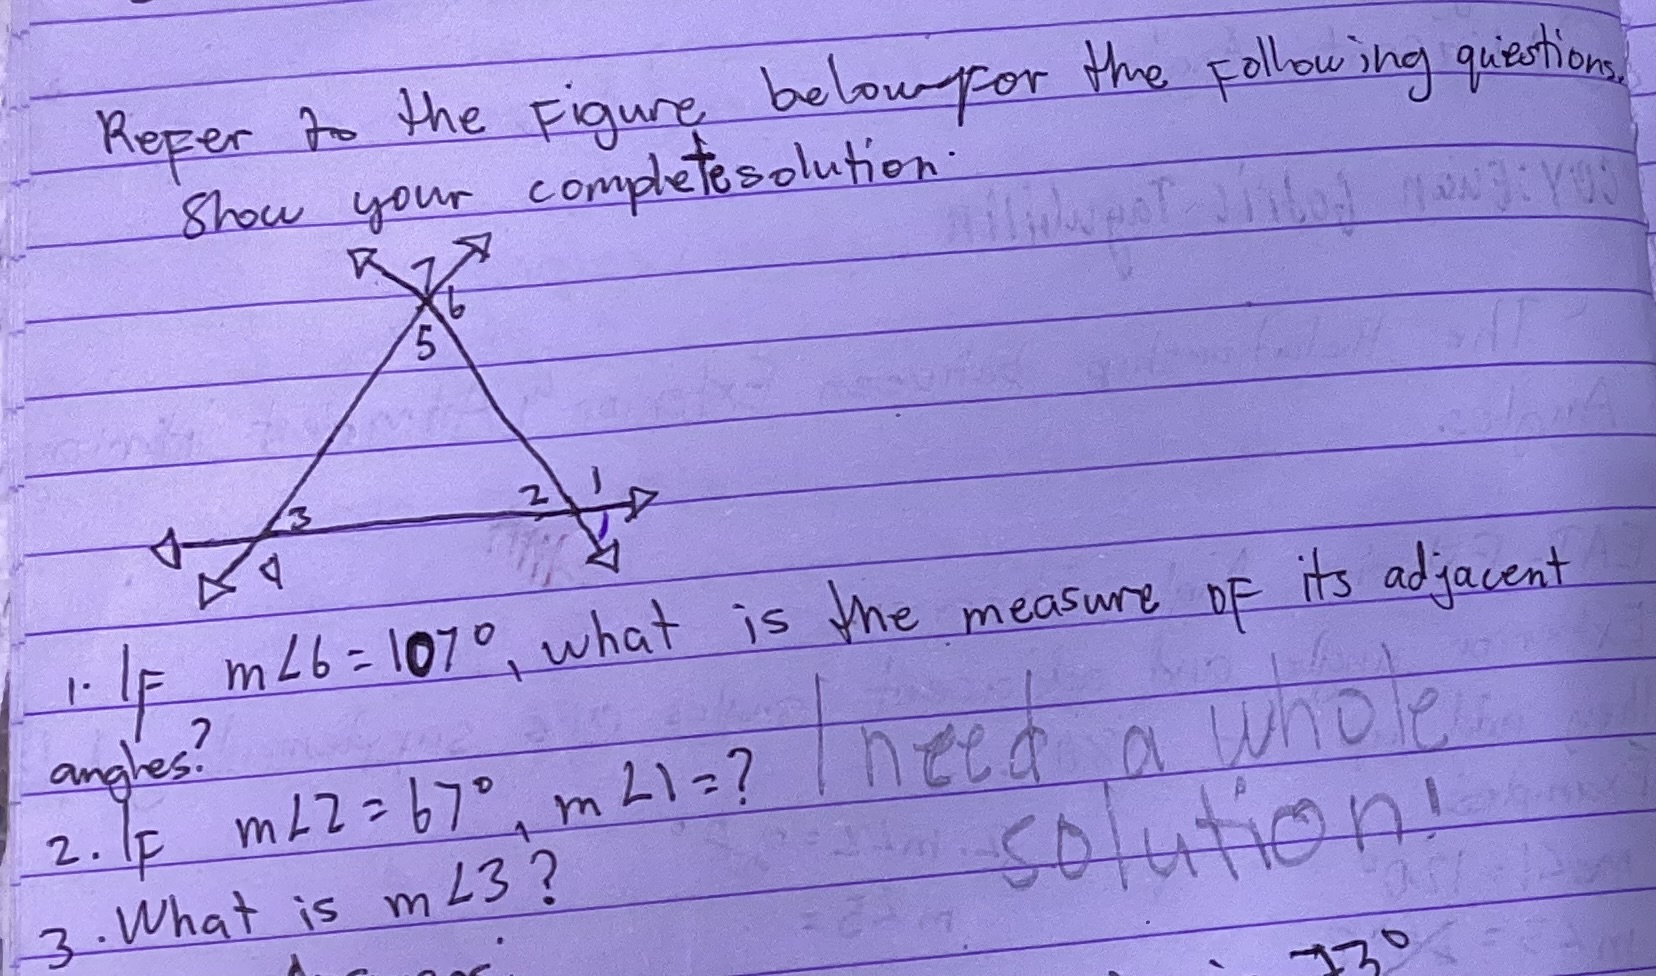 Refer to the Figure below for the Following questions.
Show your complete solution.
7
6
5
2 1
3
4
1. IF m∠6 = 107°, what is the measure OF its adjacent
angles?
2. IF m∠2 = 67°, m∠1 = ?
I need a whole
solution!
3. What is m∠3?
73°